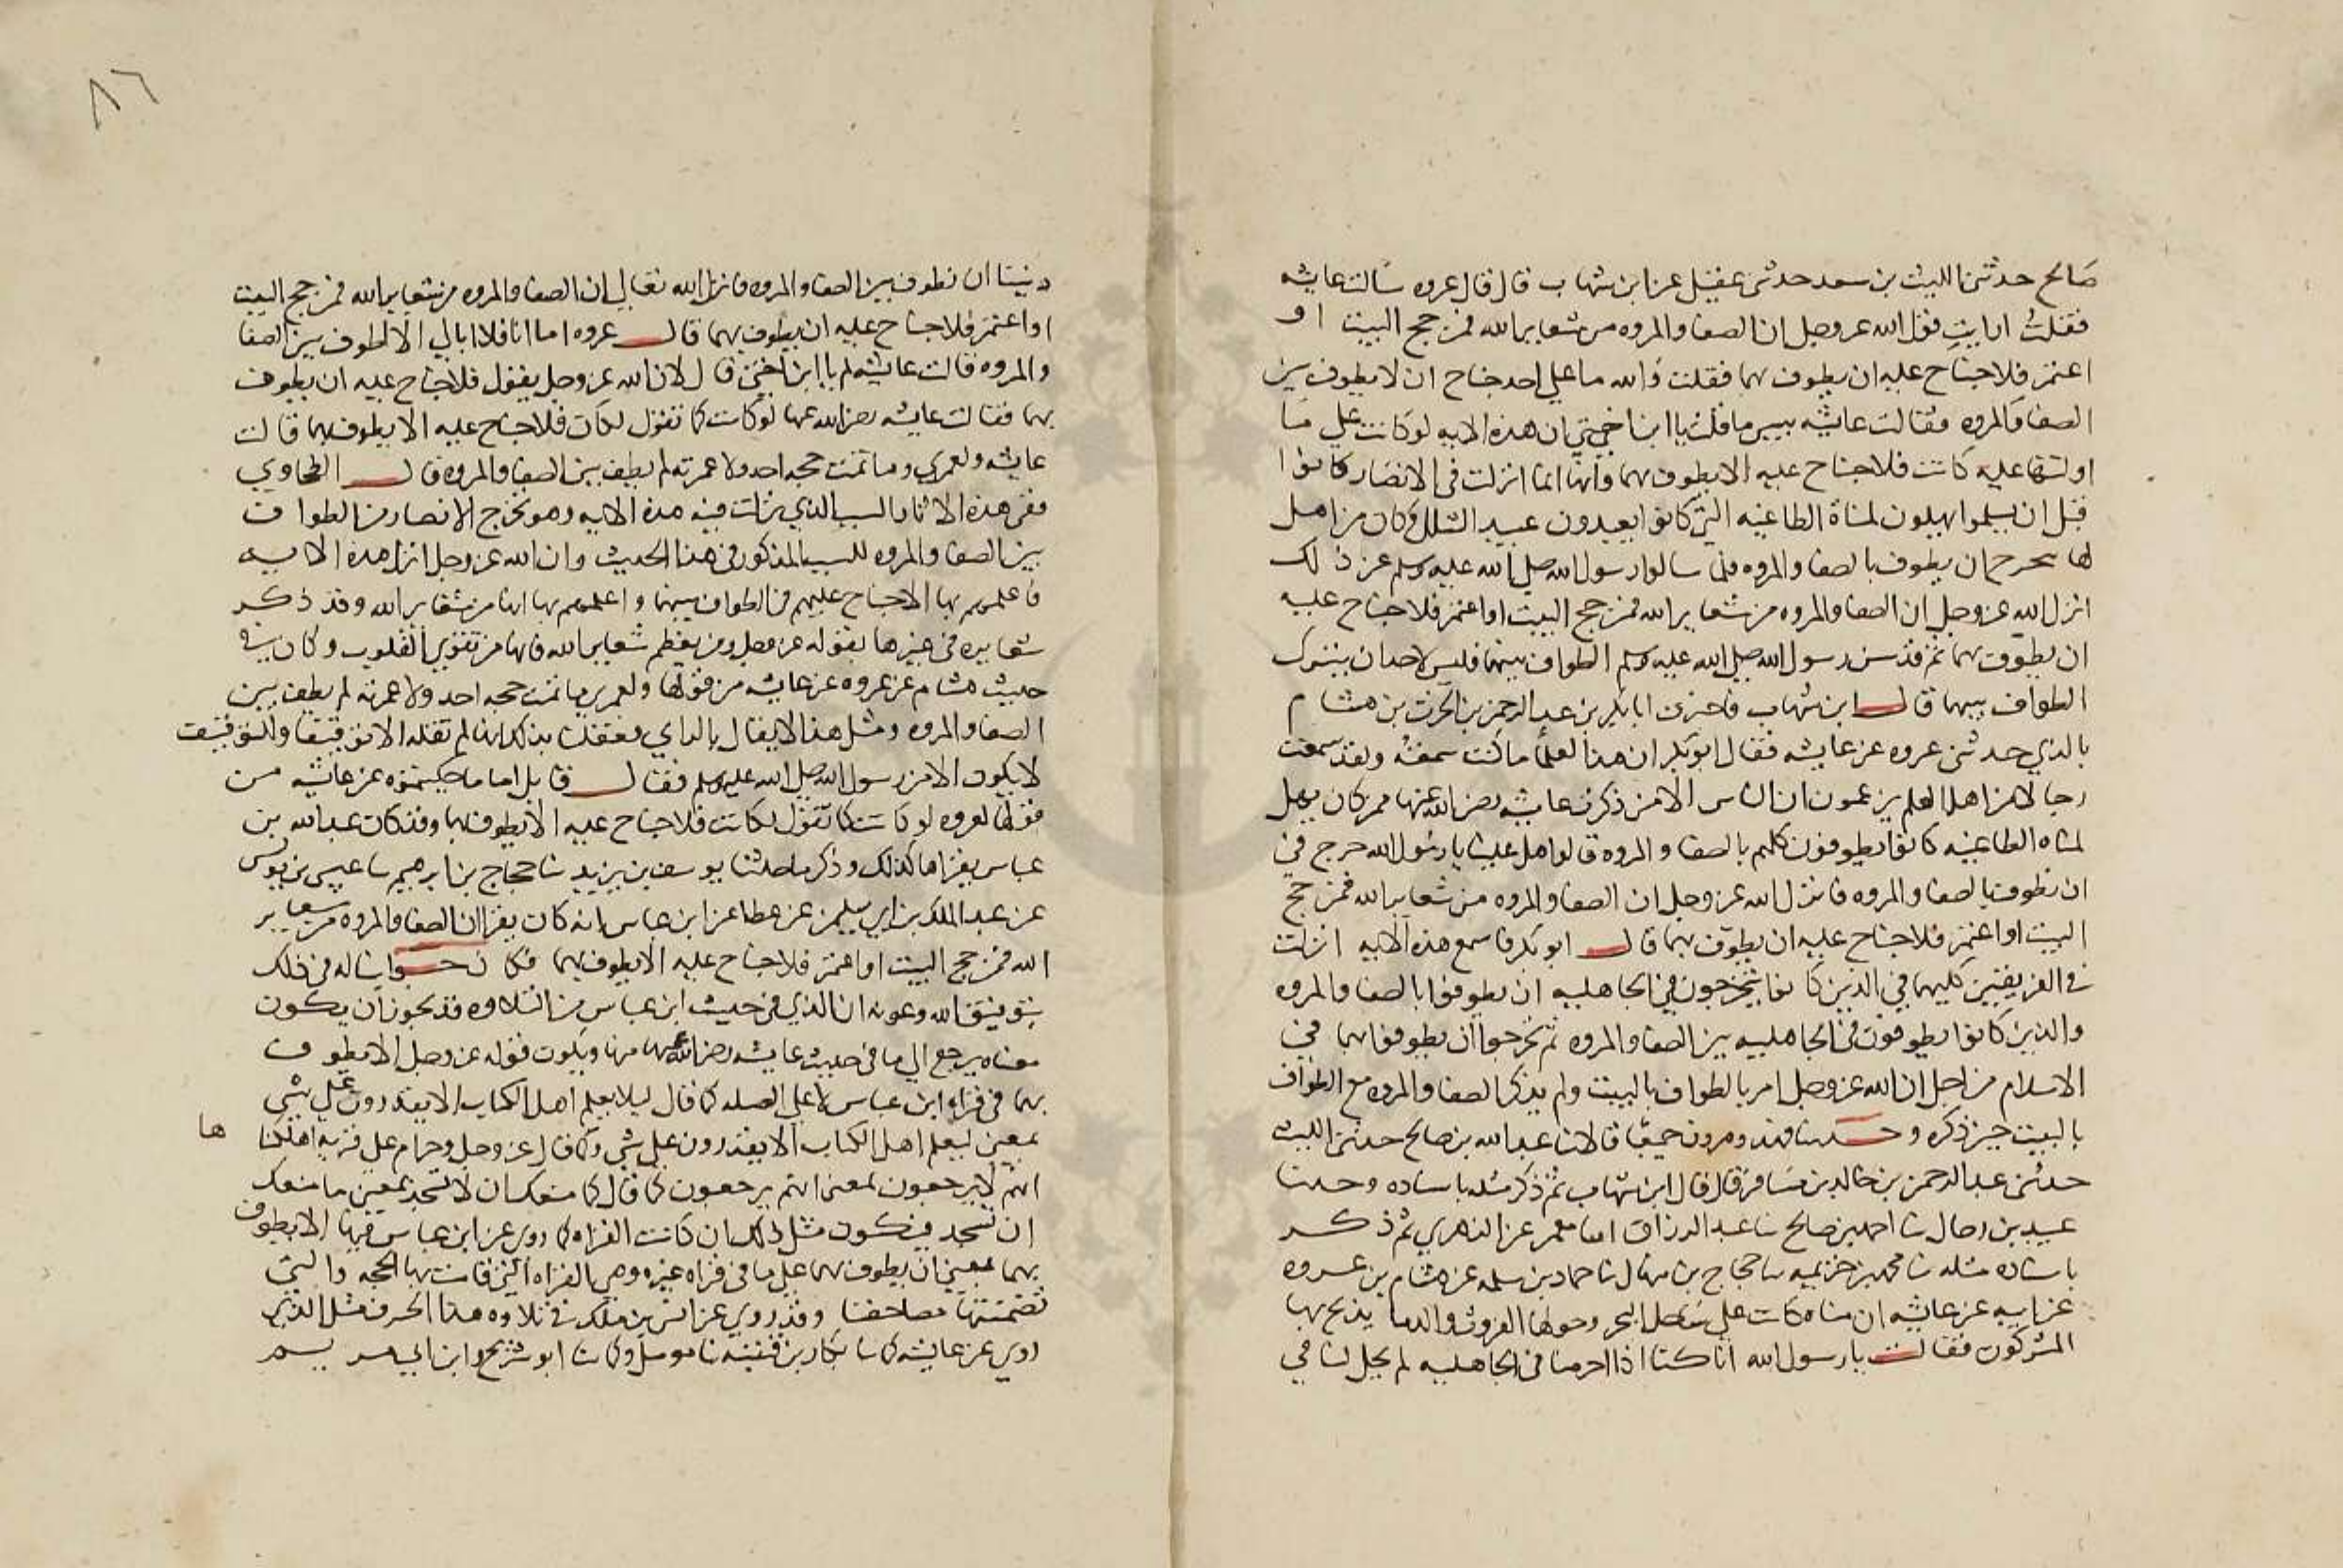 صالح حدثني الليث بن سعد حدثني عقيل عن ابن شهاب قال قال عروه سالت عايشه
فقلت ارايت قول الله عز وجل ان الصفا والمروه من شعاير الله فمن حج البيت او
اعتمر فلا جناح عليه ان يطوف بهما فقلت والله ما علي احد جناح ان لا يطوف بين
الصفا والمروه فقالت عايشه بيس ما قلت يا ابن اختي ان هذه الايه لو كانت علي ما
اولتها عليه كانت فلا جناح عليه الا يطوف بهما وانها انما انزلت في الانصار كانوا
قبل ان يسلموا يهلون لمناة الطاغيه التي كانوا يعبدون عند المشلل وكان من اهل
لها يتحرج ان يطوف بالصفا والمروه فلما سالوا رسول الله صلي الله عليه وسلم عن ذلك
انزل الله عز وجل ان الصفا والمروه من شعاير الله فمن حج البيت او اعتمر فلا جناح عليه
ان يطوف بهما ثم قد سن رسول الله صلي الله عليه وسلم الطواف بينهما فليس لاحد ان يترك
الطواف بينهما قال ابن شهاب فاخبرت ابا بكر بن عبد الرحمن بن الحرث بن هشام
بالذي حدثني عروه عن عايشه فقال ابو بكر ان هذا لعلم ما كنت سمعته ولقد سمعت
رجالا من اهل العلم يزعمون ان الناس الا من ذكرت عايشه رضي الله عنها ممن كان يهل
لمناه الطاغيه كانوا يطوفون كلهم بالصفا والمروه قالوا هل علينا يا رسول الله حرج في
ان نطوف بالصفا والمروه فانزل الله عز وجل ان الصفا والمروه من شعاير الله فمن حج
البيت او اعتمر فلا جناح عليه ان يطوف بهما قال ابو بكر فاسمع هذه الايه انزلت
في الفريقين كليهما في الذين كانوا يتحرجون في الجاهليه ان يطوفوا بالصفا والمروه
والذين كانوا يطوفون في الجاهليه بين الصفا والمروه ثم تحرجوا ان يطوفوا بهما في
الاسلام من اجل ان الله عز وجل امر بالطواف بالبيت ولم يذكر الصفا والمروه مع الطواف
بالبيت حين ذكره وحدثنا فهد وهرون جميعا قالا نا عبد الله بن صالح حدثني الليث
حدثني عبد الرحمن بن خالد بن مسافر قال قال ابن شهاب ثم ذكر مثله باسناده وحدثنا
عبيد بن رحال نا احمد بن صالح نا عبد الرزاق انا معمر عن الزهري ثم ذكر
باسناده مثله نا محمد بن خزيمه نا حجاج بن منهال نا حماد بن سلمه عن هشام بن عروه
عن ابيه عن عايشه ان مناه كانت علي ساحل البحر وحولها الفروث والدما يذبح بها
المشركون فقالت يا رسول الله انا كنا اذا احرمنا في الجاهليه لم يحل لنا في
٨٦
ديننا ان نطوف بين الصفا والمروه فانزل الله تعالي ان الصفا والمروه من شعاير الله فمن حج البيت
او اعتمر فلا جناح عليه ان يطوف بهما قال عروه اما انا فلا ابالي الا اطوف بين الصفا
والمروه قالت عايشه لم يا ابن اختي قال لان الله عز وجل يقول فلا جناح عليه ان يطوف
بهما فقالت عايشه رضي الله عنها لو كانت كما تقول لكان فلا جناح عليه الا يطوف بهما قالت
عايشه ولعمري وما تمت حجه احد ولا عمرته لم يطف بين الصفا والمروه قال الطحاوي
ففي هذه الاثار السبب الذي نزلت فيه هذه الايه وهو تحرج الانصار من الطواف
بين الصفا والمروه للسبب المذكور في هذا الحديث وان الله عز وجل انزل هذه الايه
فاعلمهم بها الا جناح عليهم في الطواف بينهما واعلمهم بها انها من شعاير الله وقد ذكر
شعايره في غيرها بقوله عز وجل ومن يعظم شعاير الله فانها من تقوي القلوب وكان في
حديث هشام عن عروه عن عايشه من قولها ولعمري ما تمت حجه احد ولا عمرته لم يطف بين
الصفا والمروه ومثل هذا لا يقال بالراي فعقلنا بذلك انها لم تقله الا توقيفا والتوقيف
لا يكون الا من رسول الله صلي الله عليه وسلم فقال قايل اما ما حكيتموه عن عايشه من
قولها لعروه لو كانت كما تقول لكانت فلا جناح عليه الا يطوف بهما وقد كان عبد الله بن
عباس يقراها كذلك وذكر ما حدثنا يوسف بن يزيد نا حجاج بن ابرهيم نا عيسي بن يونس
عن عبد الملك بن ابي سليمن عن عطا عن ابن عباس انه كان يقرا ان الصفا والمروه من شعاير
الله فمن حج البيت او اعتمر فلا جناح عليه الا يطوف بهما فكان جوابنا له في ذلك
بتوفيق الله وعونه ان الذي في حديث ابن عباس من التلاوه قد يجوز ان يكون
معناه يرجع الي ما في حديث عايشه رضي الله عنها منها ويكون قوله عز وجل الا يطوف
بهما في قراه ابن عباس لا علي الصله كما قال ليلا يعلم اهل الكتاب الا يقدرون علي شي
بمعني ليعلم اهل الكتاب الا يقدرون علي شي وكما قال عز وجل وحرام علي قريه اهلكناها
انهم لا يرجعون بمعني انهم يرجعون كما قال ما منعك ان لا تسجد بمعني ما منعك
ان تسجد فيكون مثل ذلك ان كانت القراه كما روي عن ابن عباس فيها الا يطوف
بهما بمعني ان يطوف بهما علي ما في قراه غيره وهي القراه التي قامت بها الحجه والتي
تضمنتها مصاحفنا وقد روي عن انس بن ملك في تلاوه هذا الحرف مثل الذي
روي عن عايشه كما نا بكار بن قتيبه نا مومل وكما نا ابو شريح وابن ابي مريم